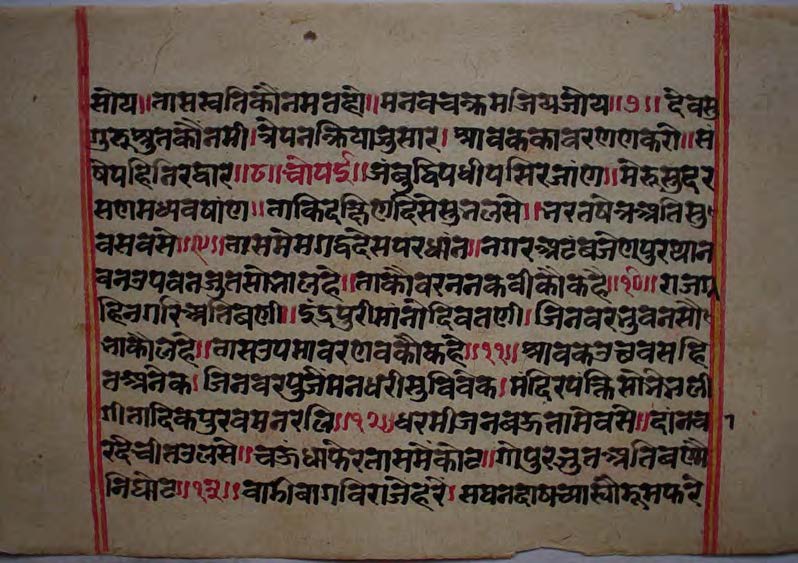 सोय॥ तास स्वतिकौ नमतहो॥ मनवचक्रमजियजोय॥७॥ देवसु
गुरुश्रुतकौ नमी। त्रेपनक्रियानुसार। श्रावककावरणणकरो॥ सं
षेपहितिरद्वार॥८॥ चोपई॥ जंबुद्विपधीपसिरजांण॥ मेरुसुदर
सणमध्यवषांण॥ ताकिदक्षिणदिससुनलसे॥ भरतषेत्रअतिसु
वसवसे॥९॥ तासमेमगद्धदेसपरधांन॥ नगर जेणपुरथान
वनउपवनजुतसोभालहै॥ ताकौवरननकवीकौकहै॥१०॥ राजग्र
हिनगरिअतिबणी॥ इंद्रपुरीमानोदिवतणी। जिनवरभुवनसौ
भाकौलहे॥ तासउपमावरणवकौकहे॥११॥ श्रावकउछवसहि
तअनेक। जिनवरपुजेमनधरीसुविवेक। मंदिरपंक्तिसोभेभली
गीतादिकपुरवमनरलि॥१२॥ धरमीजनबऊतामेवसे॥ दांनच
रदेचीतउलसे॥ चऊंधाफेरतासमेंकोट॥ गोपुरजुतअतिबणौ
निघोट॥१३॥ वाडीबागविराजेहरे। सघनदाषआम्रीरूमफरे